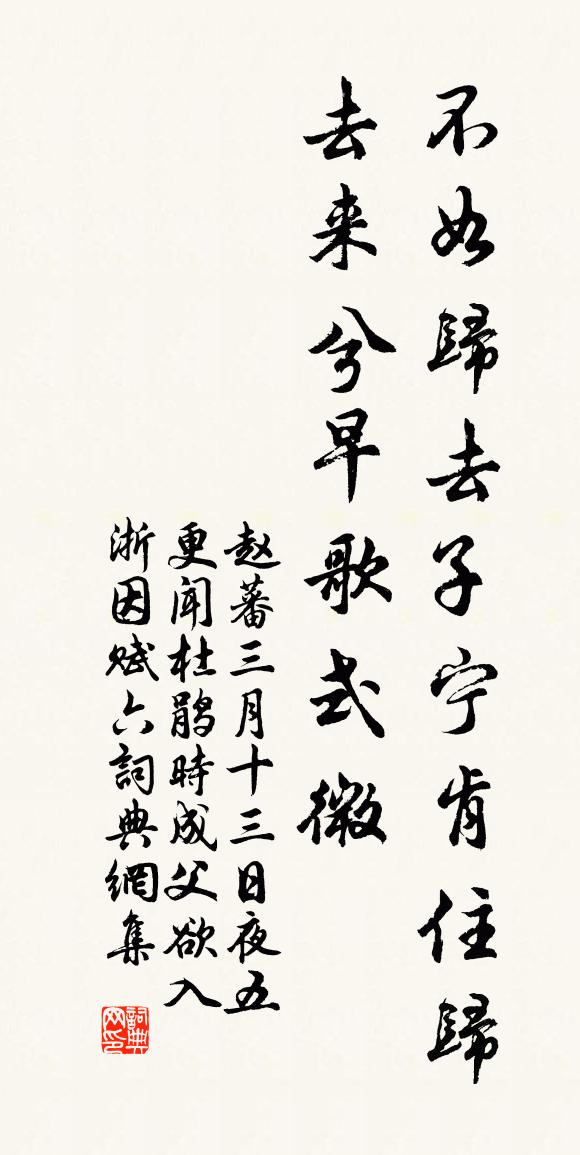 不如歸去子宁肯住歸
去来兮早歌式微
赵蕃三月十三日夜五
更闻杜鹃時成父欲入
浙因赋六詞典網集
詞典网印